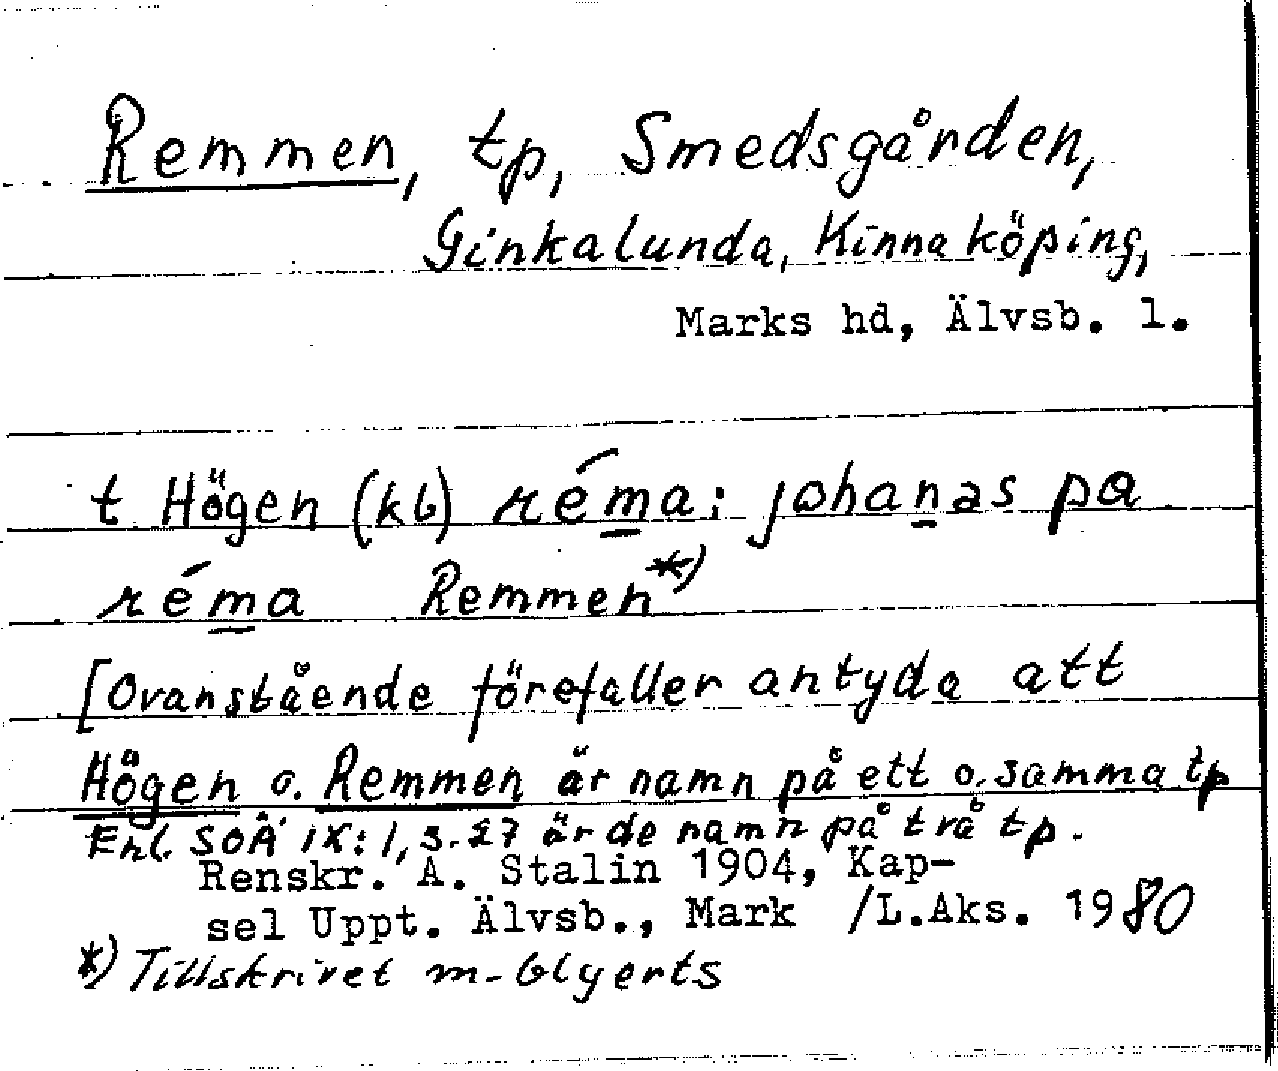 Remmen, tp, Smedsgården,
Ginkalunda, Kinna köping,
Marks hd, Älvsb. l.
t Högen (kb) réma: johanas pa
réma Remmen*)
[Ovanstående förefaller antyda att
Högen o. Remmen är namn på ett o. samma tp
Enl. SOÄ IX:1, s. 27 är de namn på två tp.
Renskr. A. Stalin 1904, Kap-
sel Uppt. Älvsb., Mark /L.Aks. 1980
*) Tillskrivet m. blyerts